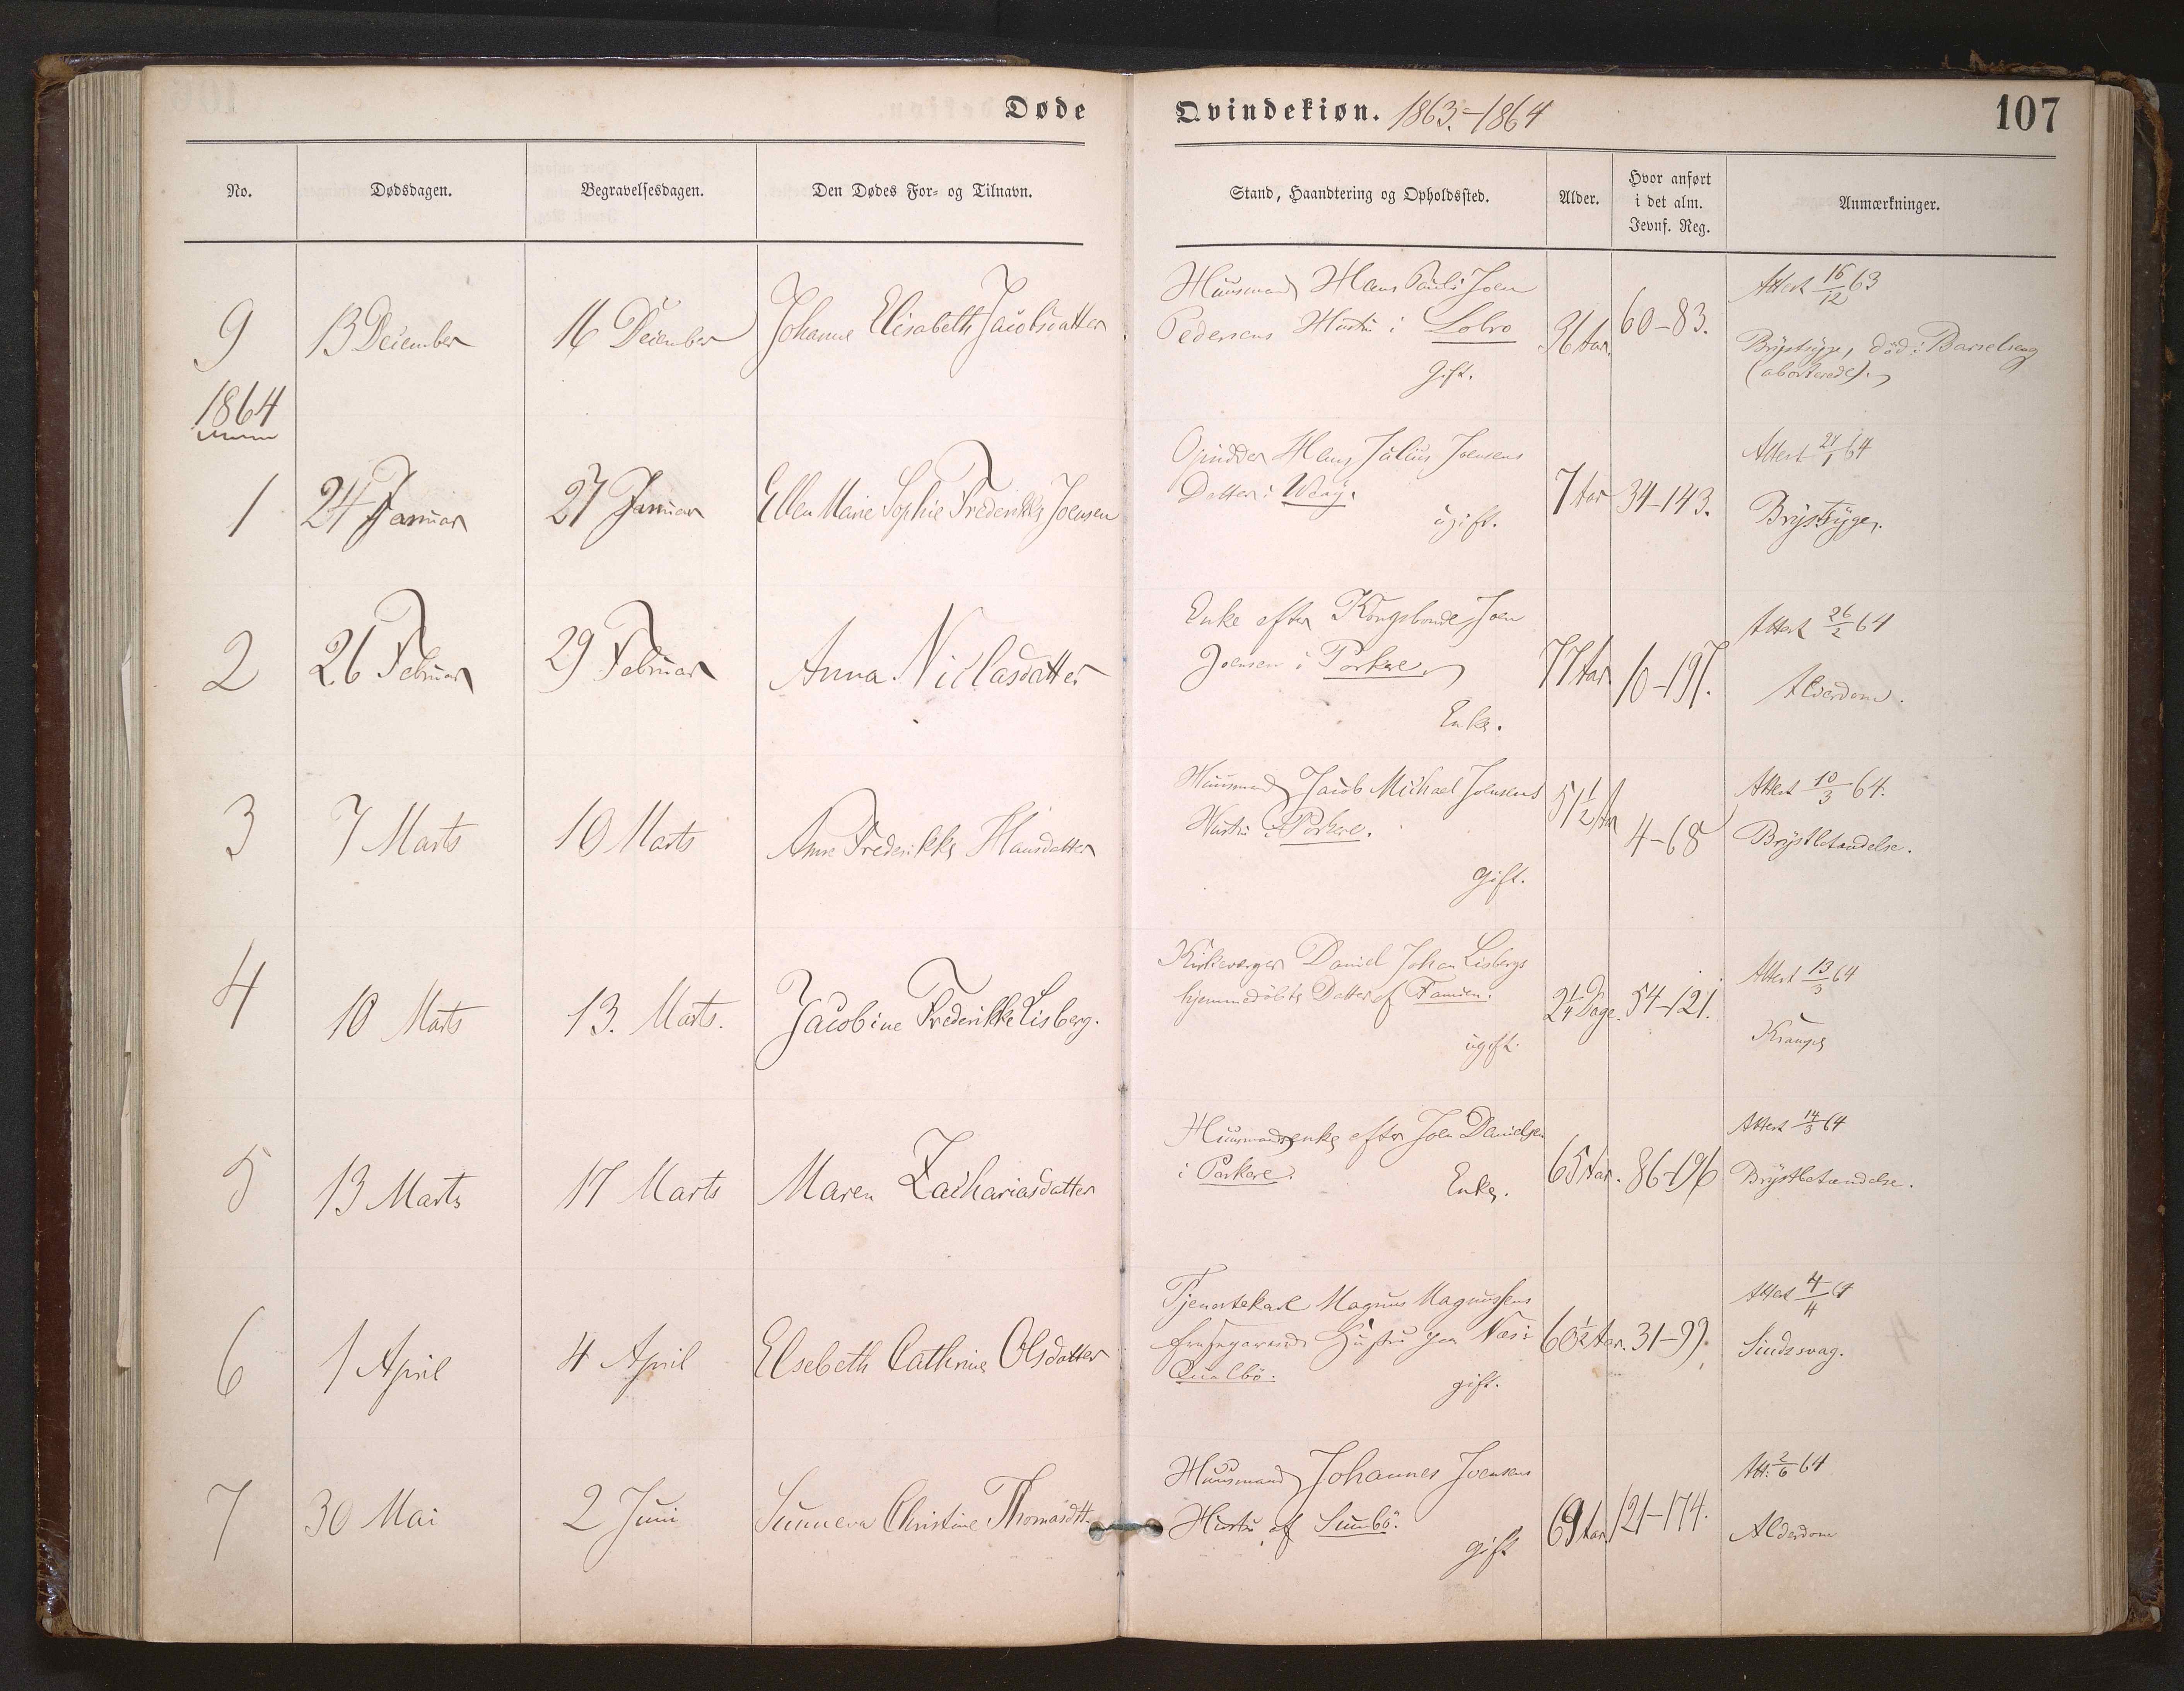 Døde Qvindekiøn. 1863.-1864 107
No. Dødsdagen. Begravelsesdagen. Den Dødes For- og Tilnavn. Stand, Haandtering og Opholdssted. Alder. Hvor anført i det alm. Jevnf. Reg. Anmærkninger.
9 13 December 16 December Johanne Elisabeth Jacobsdatter
Huusmand Hans Pauli Joen
Pedersens Hustru i Lobro
Gift.
36 Aar. 60-83.
Attest 16/12 63
Brÿstsÿge, död i Barselseng
(aborterede).
1864
1 24 Januar 27 Januar Ellen Marie Sophie Frederikke Joensen
Opsidder Hans Julius Joensens
Datter i Waaj.
ugift.
7 Aar 34-143.
Attest 27/1 64
Brÿstsÿge.
2 26 Februar 29 Februar Anna Niclasdatter
Enke efter Kongsbonde Joen
Joensen i Porkere
Enke.
77 Aar 10-197.
Attest 26/2 64
Alderdom.
3 7 Marts 10 Marts Anne Frederikke Hansdatter
Huusmand Jacob Michael Joensens
Hustru i Porkere.
gift.
51 1/2 Aar 4-68
Attest 10/3 64.
Brÿstbetændelse.
4 10 Marts 13. Marts. Jacobine Frederikke Lisberg.
Kirkeværger Daniel Johan Lisbergs
hjemmedöbte Datter af Famien.
ugift.
2 1/4 Dage. 54-121.
Attest 13/3 64
Krampe
5 13 Marts 17 Marts Maren Zachariasdatter
Huusmandsenke efter Joen Danielsen
i Porkere.
Enke.
65 Aar. 86-196
Attest 14/3 64
Brÿstbetændelse.
6 1 April 4 April Elsebeth Cathrine Olsdatter
Tjenestekarl Magnus Magnussens
Hustru paa Næs i
Qualbö.
gift.
60 1/2 Aar. 31-99.
Attest 4/4 64
Sindssvag.
7 30 Mai 2 Juni Sunneva Christine Thomasdtt.
Huusmand Johannes Joensens
Hustru af Sumbö.
gift
69 Aar. 121-174.
Att. 2/6 64
Alderdom